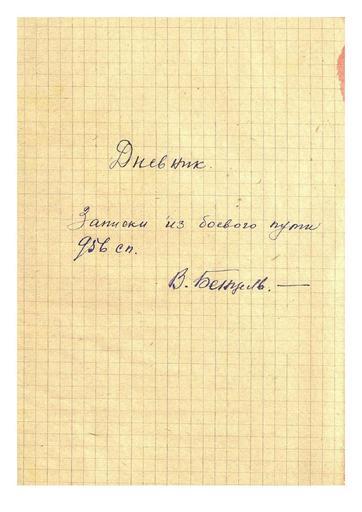 Дневник.
Записки из боевого пути
956 сп.
В. Бенцель. —